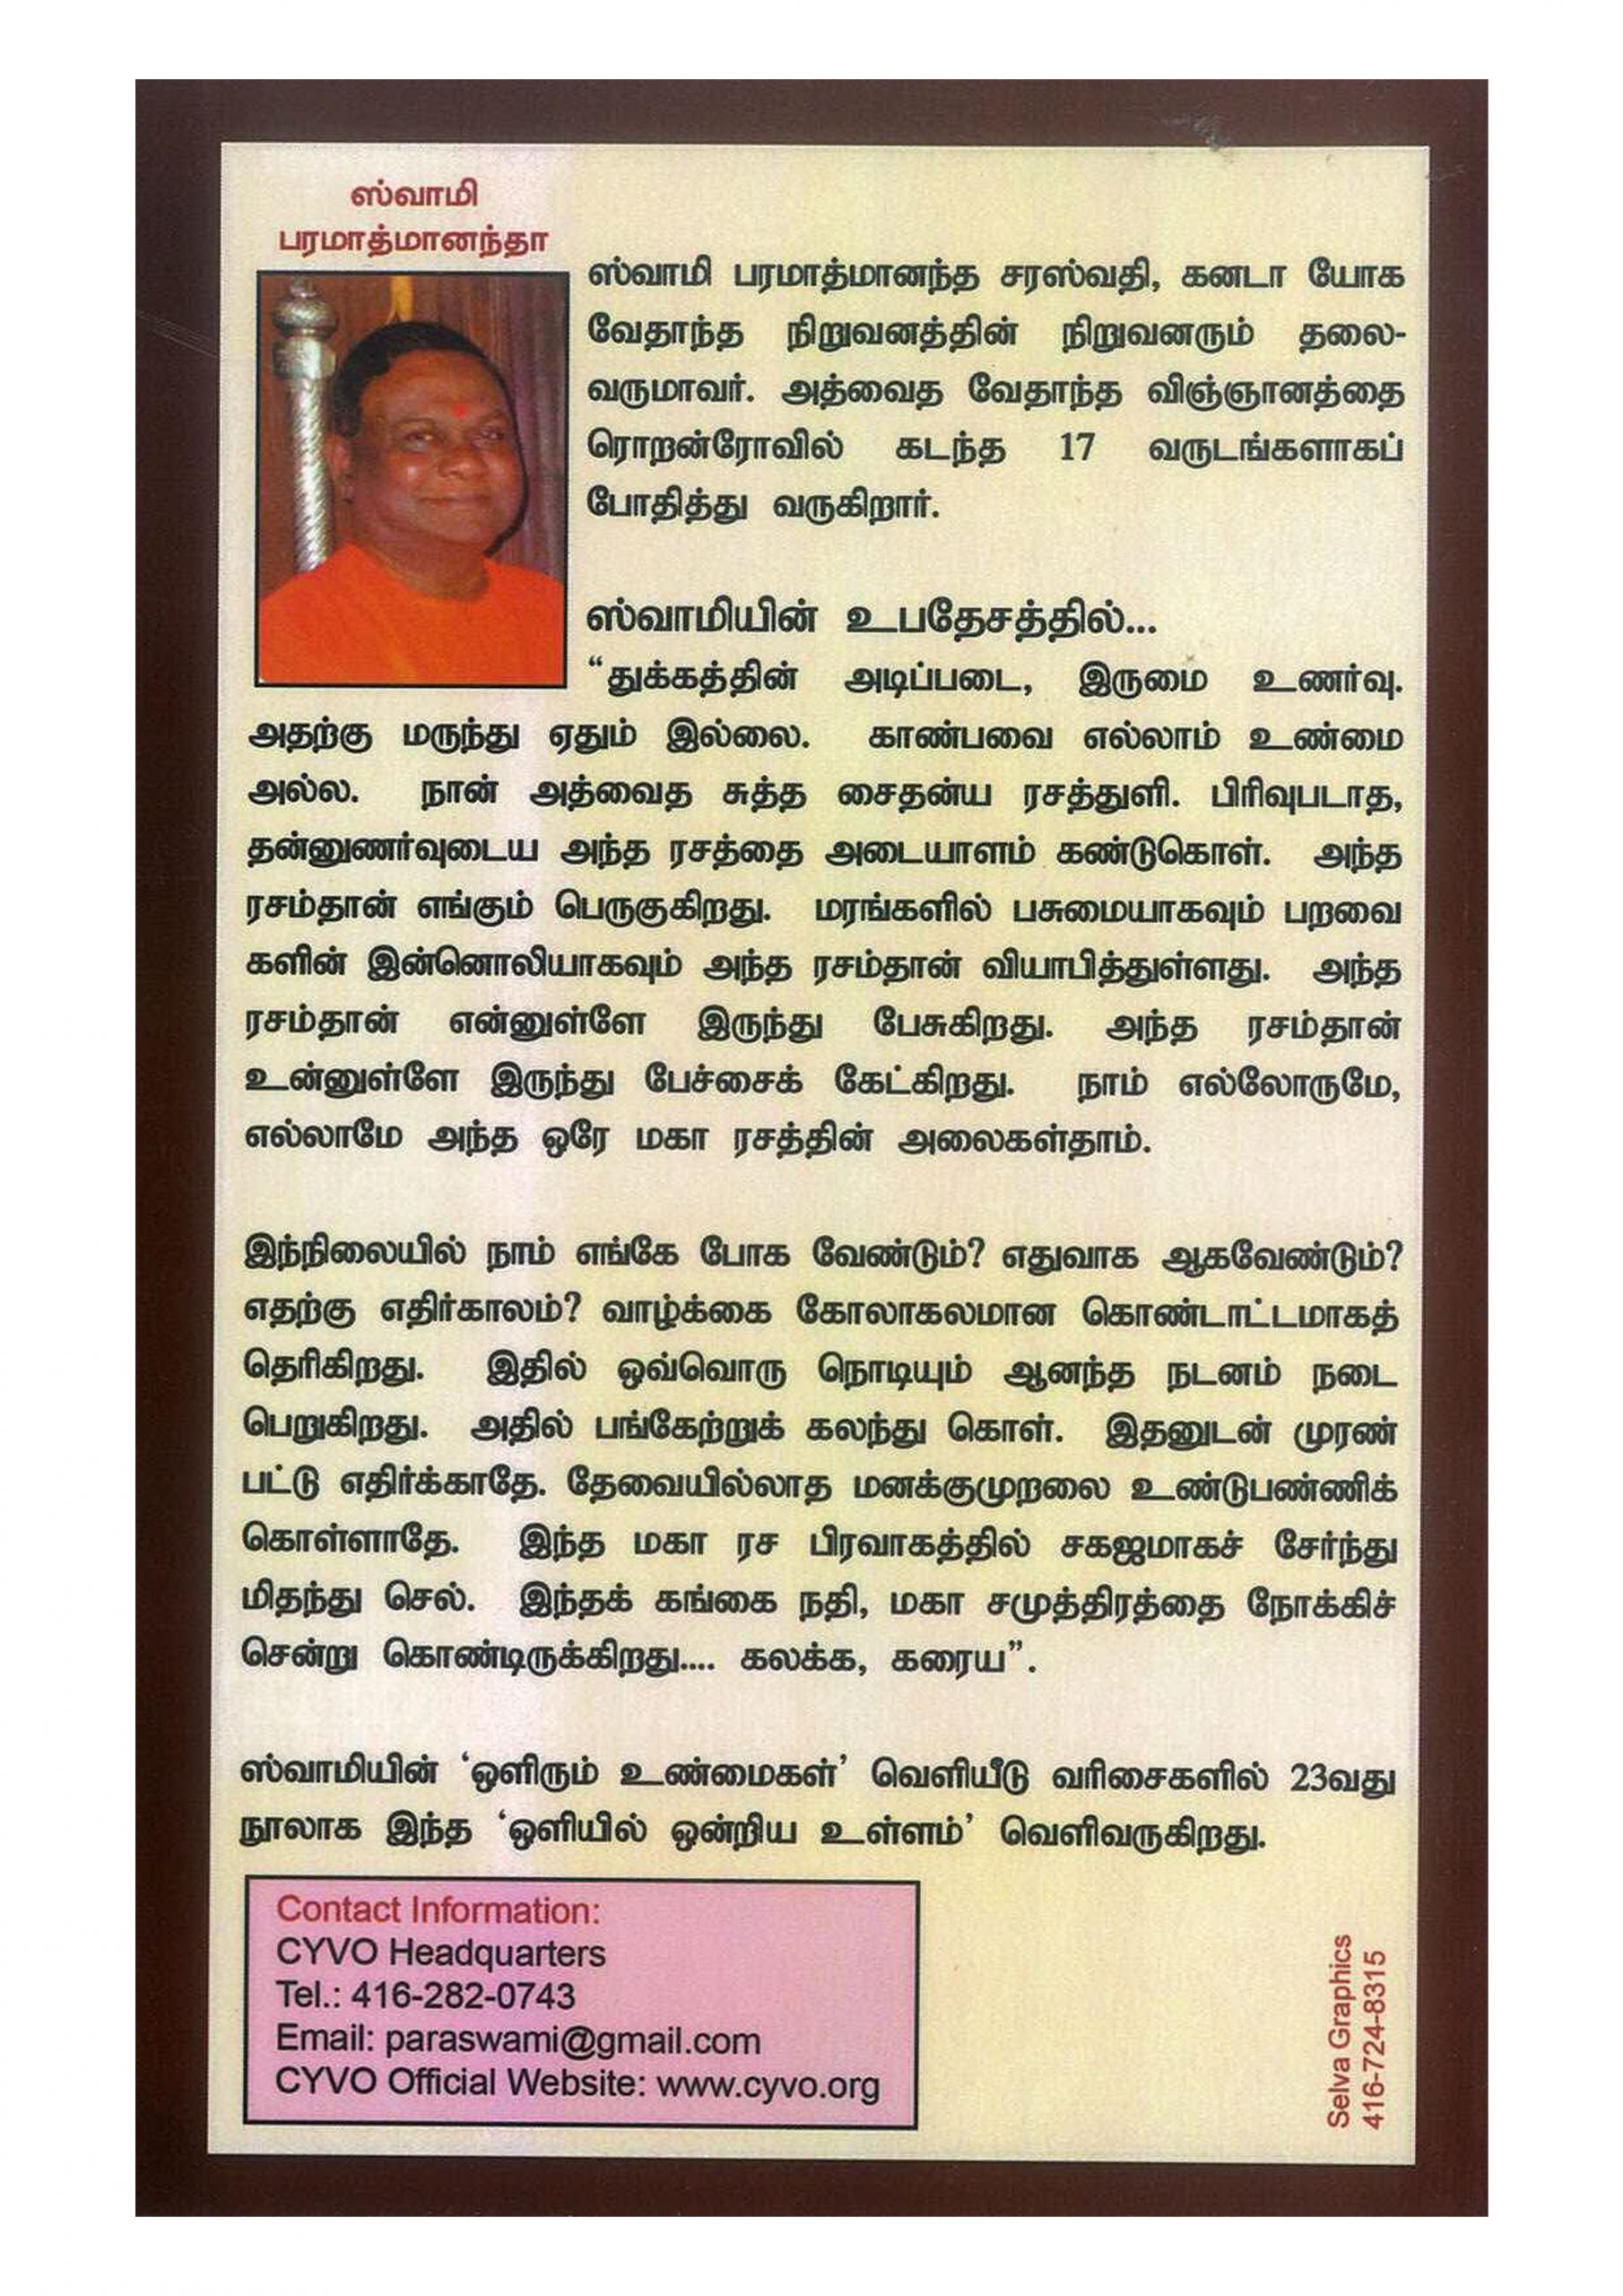 ஸ்வாமி
பரமாத்மானந்தா
ஸ்வாமி பரமாத்மானந்த சரஸ்வதி, கனடா யோக
வேதாந்த நிறுவனத்தின் நிறுவனரும் தலை-
வருமாவர். அத்வைத வேதாந்த விஞ்ஞானத்தை
ரொறன்ரோவில் கடந்த 17 வருடங்களாகப்
போதித்து வருகிறார்.
ஸ்வாமியின் உபதேசத்தில்...
“துக்கத்தின் அடிப்படை, இருமை உணர்வு.
அதற்கு மருந்து ஏதும் இல்லை. காண்பவை எல்லாம் உண்மை
அல்ல. நான் அத்வைத சுத்த சைதன்ய ரசத்துளி. பிரிவுபடாத,
தன்னுணர்வுடைய அந்த ரசத்தை அடையாளம் கண்டுகொள். அந்த
ரசம்தான் எங்கும் பெருகுகிறது. மரங்களில் பசுமையாகவும் பறவை
களின் இன்னொலியாகவும் அந்த ரசம்தான் வியாபித்துள்ளது. அந்த
ரசம்தான் என்னுள்ளே இருந்து பேசுகிறது. அந்த ரசம்தான்
உன்னுள்ளே இருந்து பேச்சைக் கேட்கிறது. நாம் எல்லோருமே,
எல்லாமே அந்த ஒரே மகா ரசத்தின் அலைகள்தாம்.
இந்நிலையில் நாம் எங்கே போக வேண்டும்? எதுவாக ஆகவேண்டும்?
எதற்கு எதிர்காலம்? வாழ்க்கை கோலாகலமான கொண்டாட்டமாகத்
தெரிகிறது. இதில் ஒவ்வொரு நொடியும் ஆனந்த நடனம் நடை
பெறுகிறது. அதில் பங்கேற்றுக் கலந்து கொள். இதனுடன் முரண்
பட்டு எதிர்க்காதே. தேவையில்லாத மனக்குமுறலை உண்டுபண்ணிக்
கொள்ளாதே. இந்த மகா ரச பிரவாகத்தில் சகஜமாகச் சேர்ந்து
மிதந்து செல். இந்தக் கங்கை நதி, மகா சமுத்திரத்தை நோக்கிச்
சென்று கொண்டிருக்கிறது.... கலக்க, கரைய”.
ஸ்வாமியின் ‘ஒளிரும் உண்மைகள்’ வெளியீடு வரிசைகளில் 23வது
நூலாக இந்த ‘ஒளியில் ஒன்றிய உள்ளம்’ வெளிவருகிறது.
Contact Information:
CYVO Headquarters
Tel.: 416-282-0743
Email: paraswami@gmail.com
CYVO Official Website: www.cyvo.org
Selva Graphics
416-724-8315